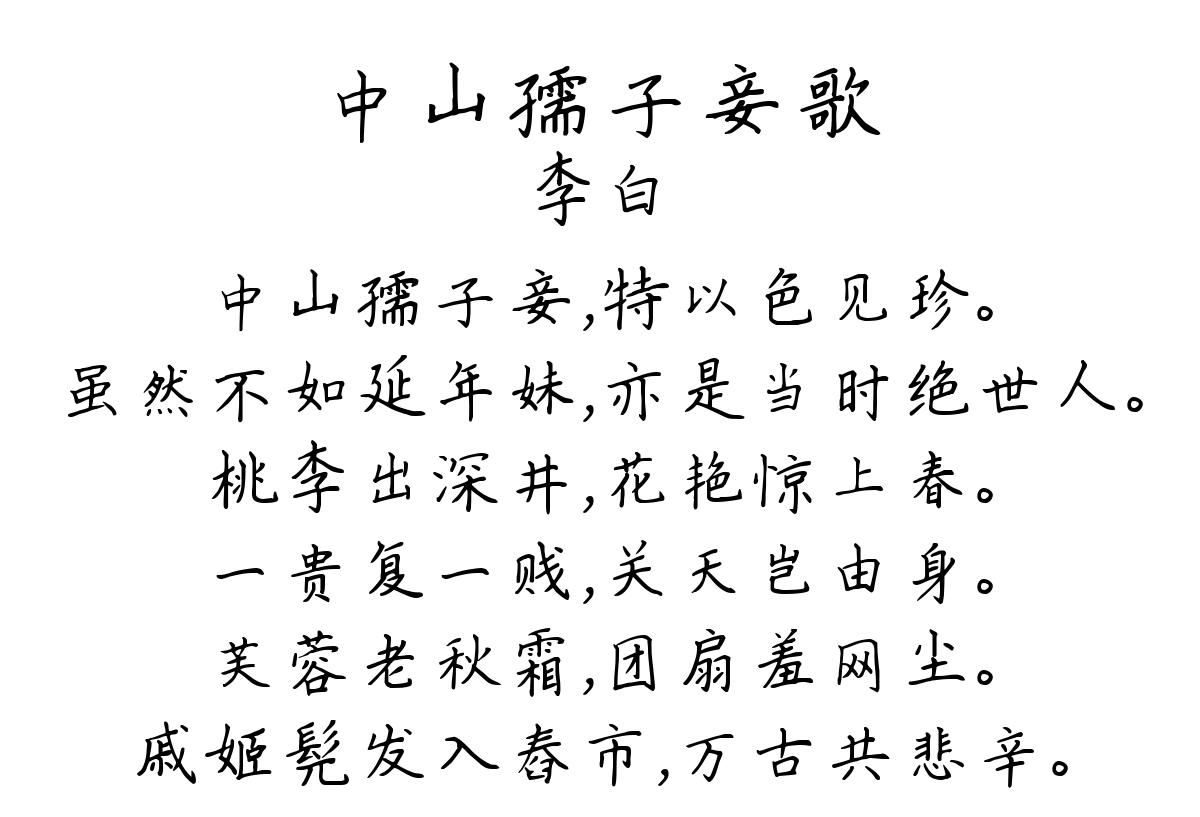 中山孺子妾歌
李白
中山孺子妾,特以色见珍。
虽然不如延年妹,亦是当时绝世人。
桃李出深井,花艳惊上春。
一贵复一贱,关天岂由身。
芙蓉老秋霜,团扇羞网尘。
戚姬髡发入舂市,万古共悲辛。